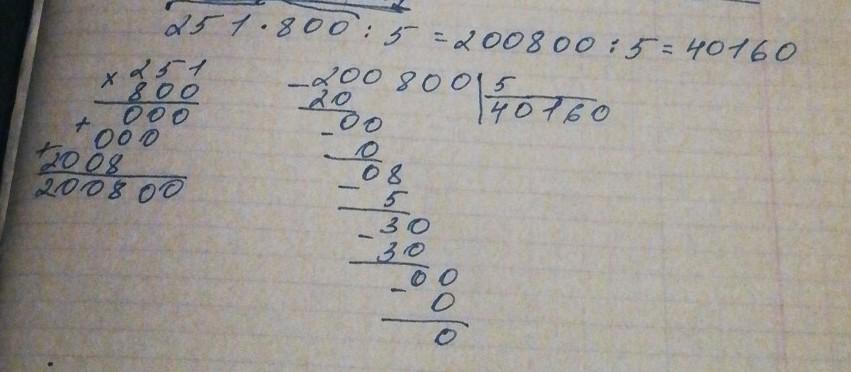 251·800:5=200800:5=40160
×251
800
000
+000
+2008
200800
-200800|5
20 40160
-00
0
08
-5
30
-30
00
-0
0